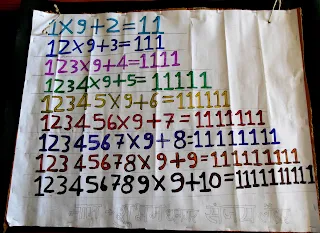 1×9+2=11
12×9+3=111
123×9+4=1111
1234×9+5=11111
12345×9+6=111111
123456×9+7=1111111
1234567×9+8=11111111
12345678×9+9=111111111
123456789×9+10=1111111111